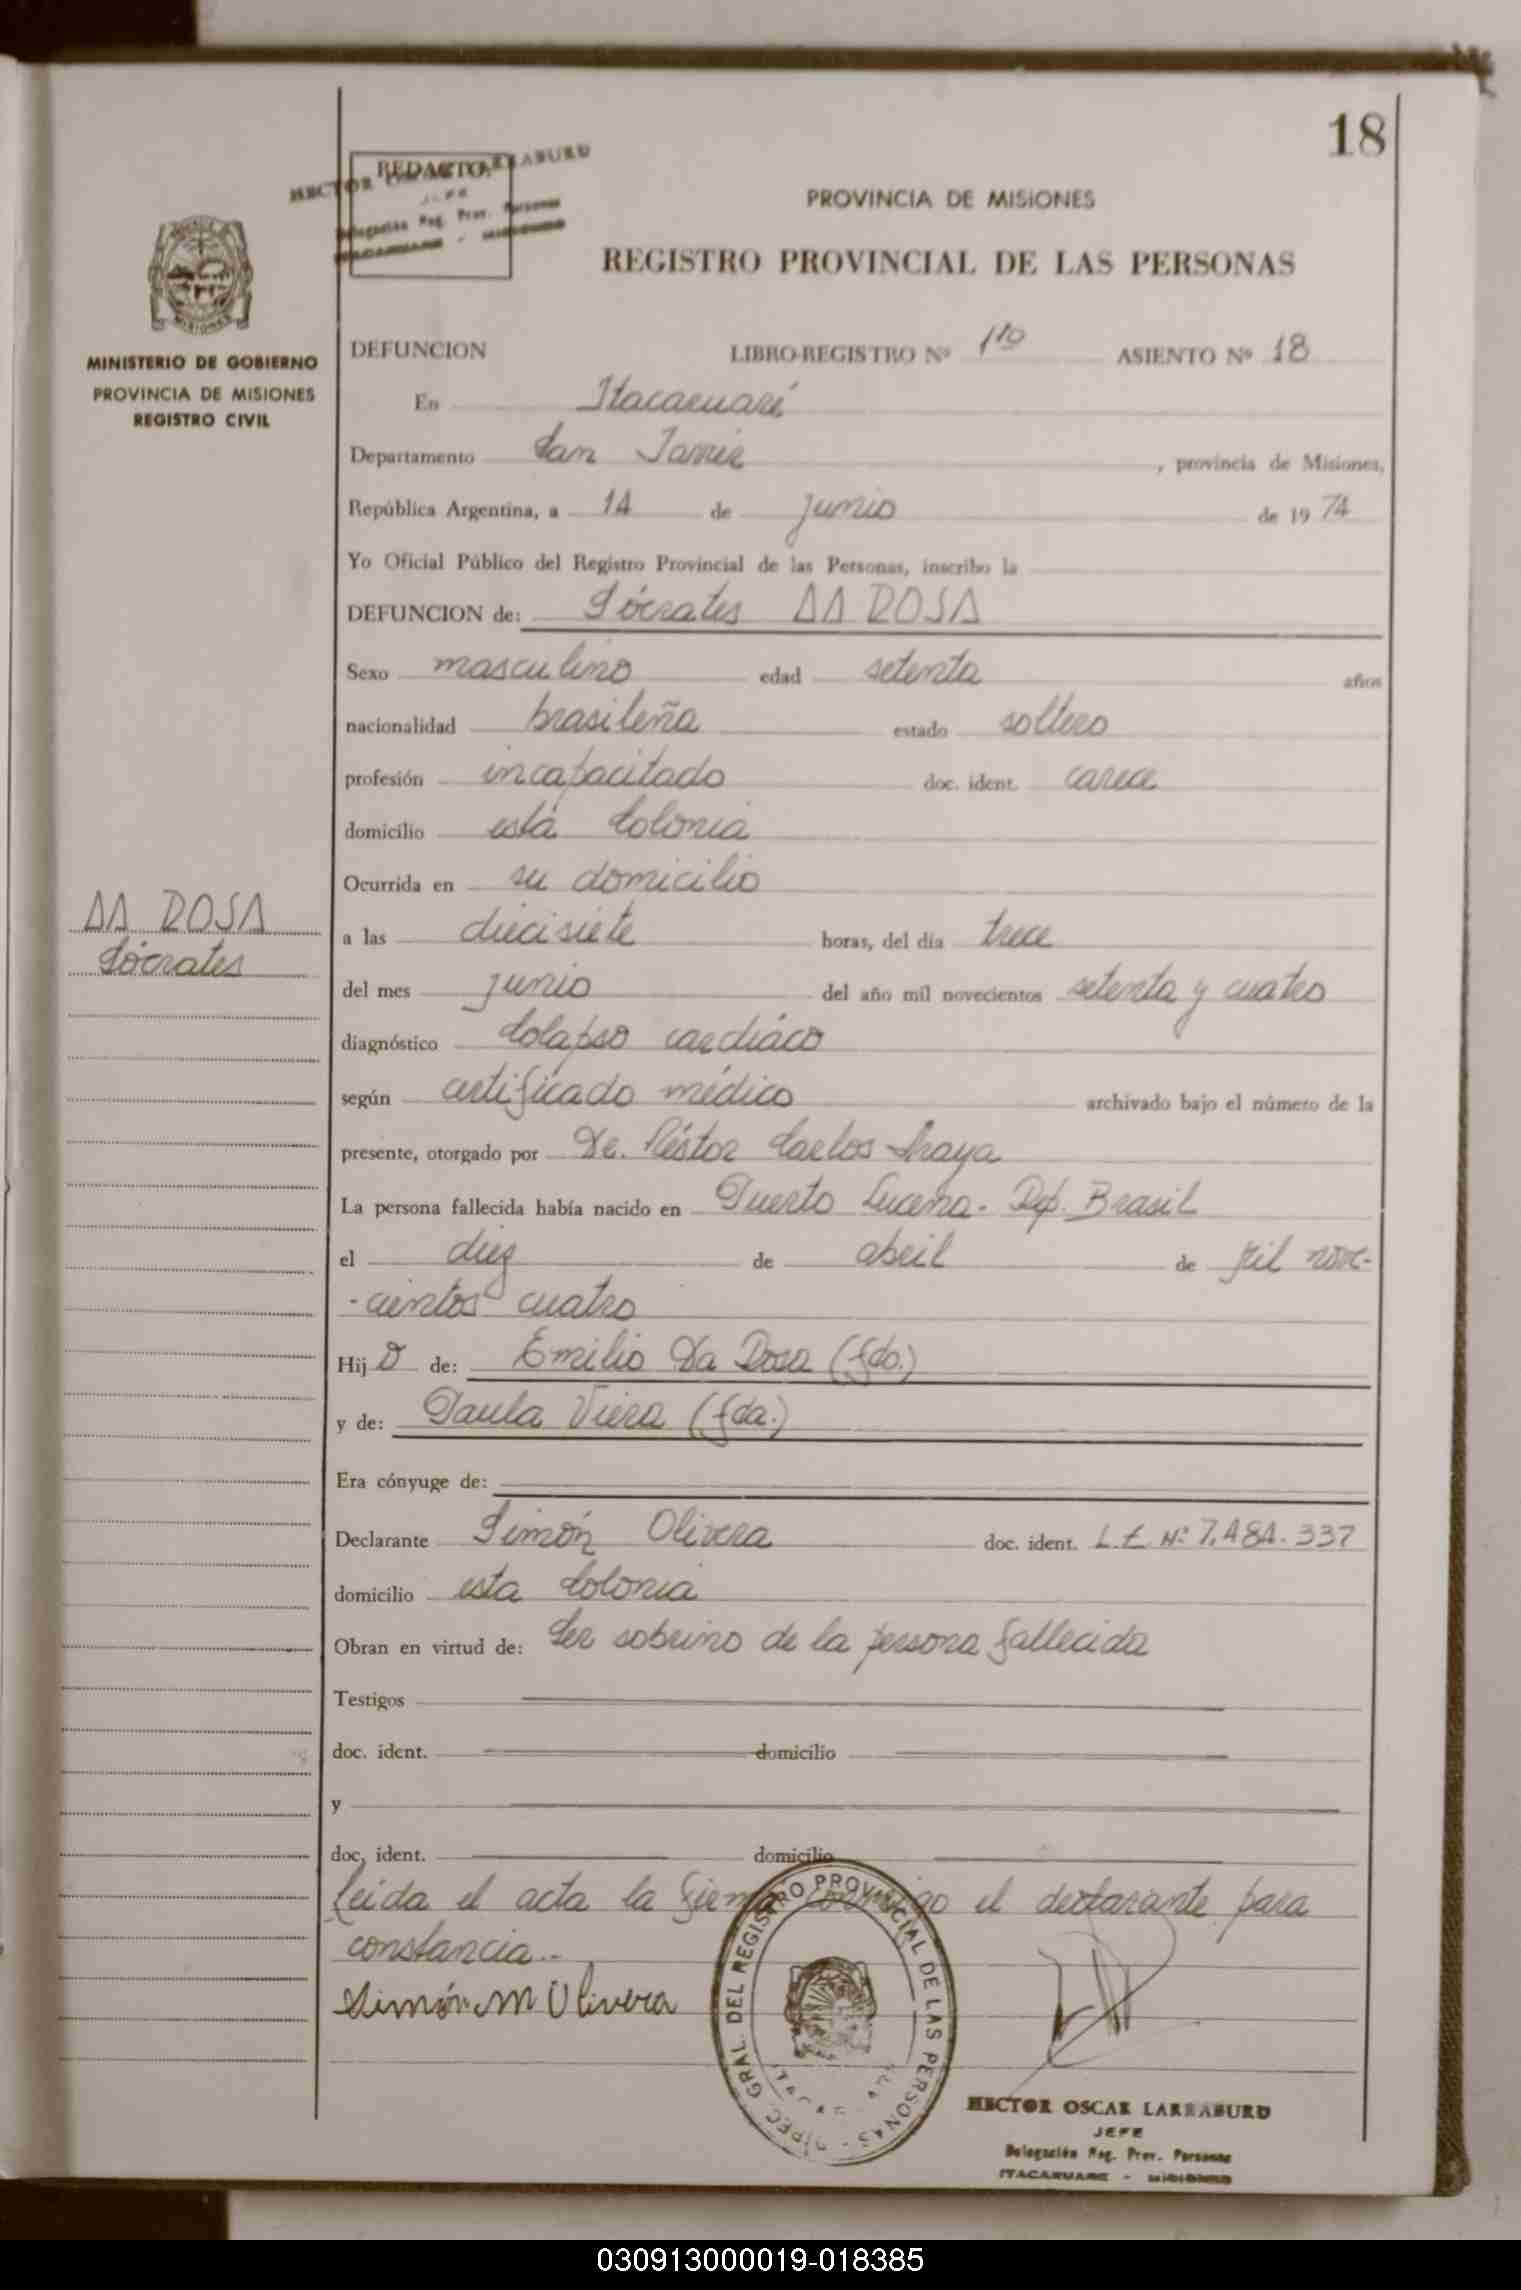 18
HECTOR OSCAR LARRABURU
REDACTO:
JEFE
Delegación Reg. Prov. Personas
ITACARUARE - MISIONES
PROVINCIA DE MISIONES
REGISTRO PROVINCIAL DE LAS PERSONAS
MISIONES
MINISTERIO DE GOBIERNO
PROVINCIA DE MISIONES
REGISTRO CIVIL
DEFUNCION LIBRO-REGISTRO Nº 1ro ASIENTO Nº 18
En Itacaruaré
Departamento San Javier, provincia de Misiones,
República Argentina, a 14 de junio de 1974
Yo Oficial Público del Registro Provincial de las Personas, inscribo la
DEFUNCION de: Sócrates DA ROSA
Sexo masculino edad setenta años
nacionalidad brasileña estado soltero
profesión incapacitado doc. ident. carece
domicilio está Colonia
Ocurrida en su domicilio
DA ROSA
Sócrates
a las diecisiete horas, del día trece
del mes junio del año mil novecientos setenta y cuatro
diagnóstico Colapso cardiáco
según certificado médico archivado bajo el número de la
presente, otorgado por Dr. Néstor Carlos Araya
La persona fallecida había nacido en Puerto Lucena - Rep. Brasil
el diez de abril de mil nove-
-cientos cuatro
Hijo de: Emilio Da Rosa (fdo.)
y de: Paula Viera (fda.)
Era cónyuge de:
Declarante Simón Olivera doc. ident. L.E. Nº 7.484.337
domicilio esta Colonia
Obran en virtud de: Ser sobrino de la persona fallecida
Testigos
doc. ident. domicilio
y
doc. ident. domicilio
Leída el acta la firma conmigo el declarante para
constancia.-
Simón M Olivera
DIREC. GRAL. DEL REGISTRO PROVINCIAL DE LAS PERSONAS
HECTOR OSCAR LARRABURU
JEFE
Delegación Reg. Prov. Personas
ITACARUARE - MISIONES
030913000019-018385